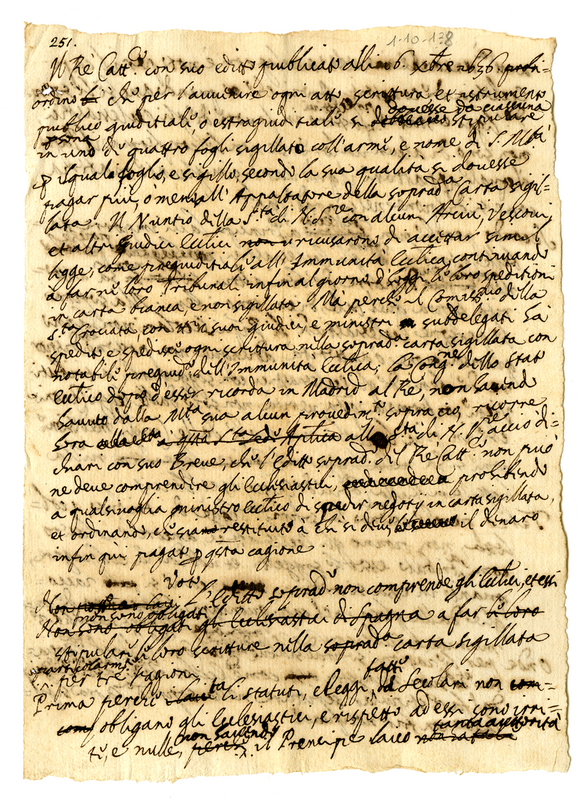 251.
1-10-138
Il Re Catt.co con suo editto publicato alli 6. Xbre 1636
ordinò che per l'avvenire ogni atto scrittura et instrumento
publico giuditiale o estragiuditiale si dovesse da ciascuna
persona stipulare
in uno di quattro fogli sigillato coll'armi, e nome di S. Mtà
quali foglio, e sigillo secondo la sua qualità si dovesse
pagar più, o meno all'Appaltatore della soprad.a Carta sigil-
lata. Il Nuntio della S.tà di N. S.re con alcuni Arciv. Vescovi
et altri Giudici Eccl.ci ricusarono di accettar simil
legge, come pregiuditiale all'Immunità Eccl.ica, continuando
a far ne loro Tribunali infin al giorno d' le loro speditioni
in carta bianca, e non sigillata. Ma perche il Comessario della
S.ta Crociata, con suoi Giudici, e ministri subdelegati ha
spedito e spedisce ogni scrittura nella soprad.a carta sigillata con
notabile pregiud.o dell'Immunità Eccl.ica, la Cong.ne dello Stato
Eccl.ico dopo d'esser ricorsa in Madrid al Re, non havend
havuto dalla Mtà sua alcun provedim.to sopra ciò, ricorre
hora alla S.tà di N. S.re accio di-
chiari con suo Breve, che l'Editto soprad.o del Re Catt.co non può
ne deve comprendere gli Ecclesiastici, prohibendo
a qualsivoglia ministro Eccl.ico di spedir negotij in carta sigillata,
et ordinando, che sia restituito a chi si deve il denaro
infin qui pagato p q.sta cagione.
Voto
L'editto soprad.o non comprende gli Eccl.ci, et essi
non sono obligati
Non sono obligati gli Ecclesiastici di Spagna a far
stipulare le loro scritture nella soprad.a carta sigillata
per tre ragioni
Prima perche li statuti, e leggi fatti da Secolari non
obligano gli Ecclesiastici, e rispetto ad essi sono irri-
ti, e nulle, non havendo il Prencipe laico tanta autorità